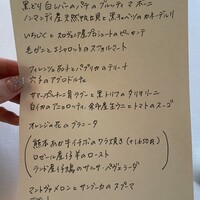 黒どり 白レバーのパテの ブルッティ マ ボーニ
ノルマンディ産 天然帆立貝と 黒キャベツの カネーデルリ
いちじくと スロヴェニア産プロシュートの ピッツェッタ
毛ガニと エシャロットの スフォルマート
フィレンツェ 茄子と パプリカの テリーナ
穴子の アグロドルチェ
サマーポルチーニ茸 ラグーと 黒トリフの タリオリーニ
白イカの アニョロッティ、余市産生ウニと トマトの スーゴ
オレンジの花の グラニータ
熊本あか牛イチボの ワラ焼き (+1,650円)
ロゼール産仔羊の ロースト
ランド産仔鳩の サルサ・ペヴェラーダ
マントヴァメロンと サンブーカの スプーマ